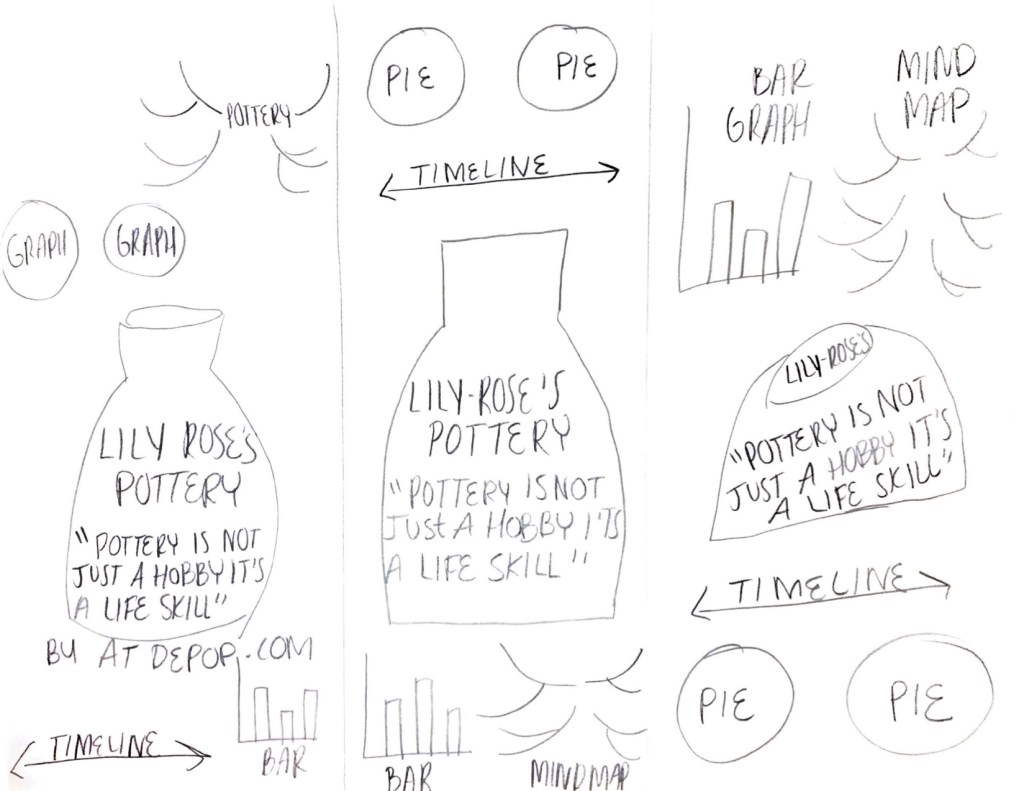 POTTERY
GRAPH
GRAPH
LILY ROSE'S
POTTERY
"POTTERY IS NOT
JUST A HOBBY IT'S
A LIFE SKILL"
BU AT DEPOP.COM
TIMELINE
BAR
PIE
PIE
TIMELINE
LILY-ROSE'S
POTTERY
"POTTERY IS NOT
JUST A HOBBY ITS
A LIFE SKILL"
BAR
MINDMAP
BAR
GRAPH
MIND
MAP
LILY-ROSE'S
"POTTERY IS NOT
JUST A HOBBY IT'S
A LIFE SKILL"
TIMELINE
PIE
PIE